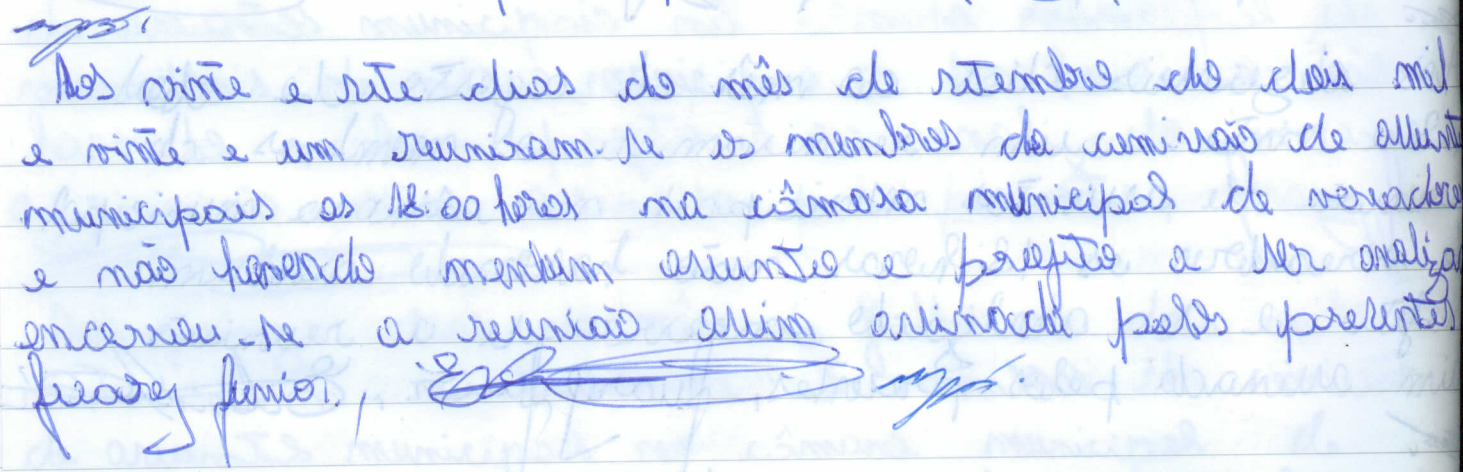 Aos vinte e sete dias do mês de setembro de dois mil
e vinte e um reuniram-se os membros da comissão de assunt
municipais as 18:00 horas na câmara municipal de vereadore
e não havendo nenhum assunto e projeto a ser analiza
encerrou-se a reunião assim assinada pelos presentes
Juarez Junior.,